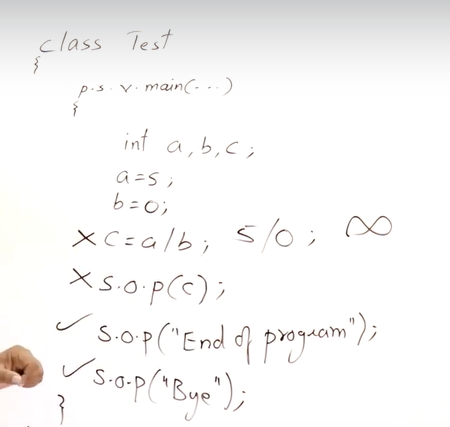 class Test
{
p.s.v.main(...)
{
int a,b,c;
a=5;
b=0;
× c=a/b; 5/0; ∞
× s.o.p(c);
✓ s.o.p("End of program");
✓ s.o.p("Bye");
}